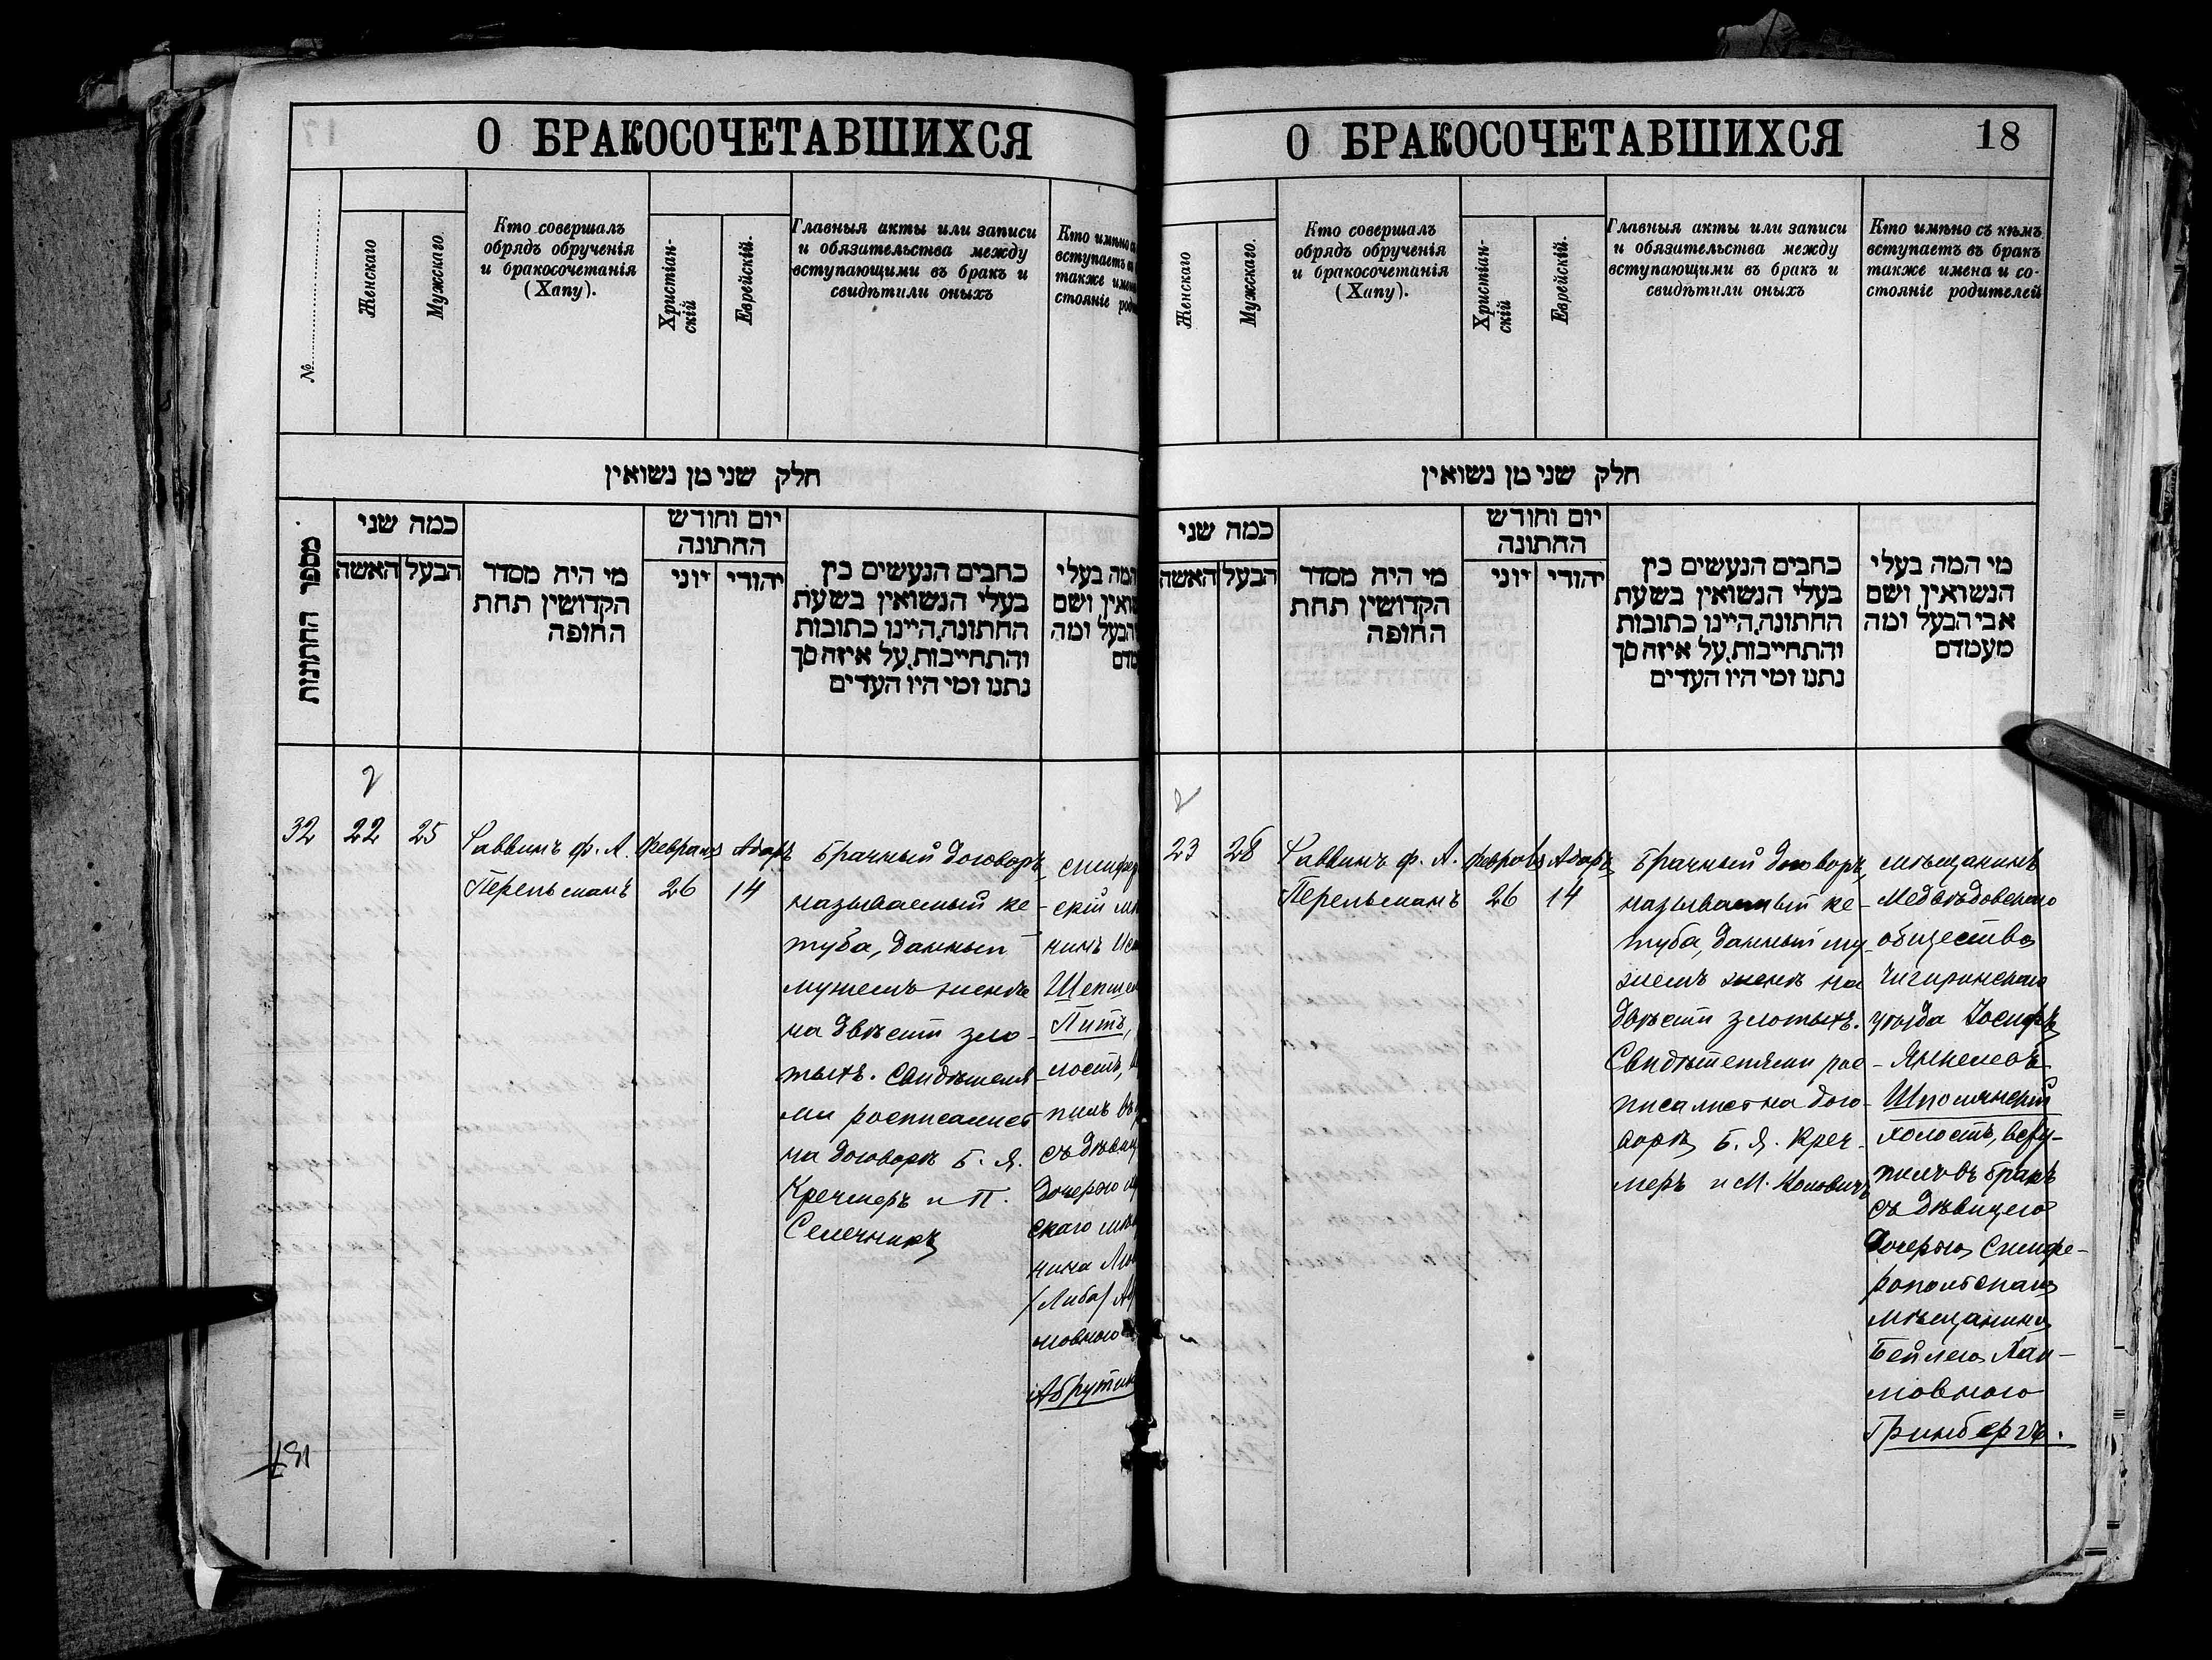 О БРАКОСОЧЕТАВШИХСЯ
№
Женскаго
Мужскаго.
Кто совершалъ
обрядъ обрученія
и бракосочетанія
(Хапу).
Христіан-
скій
Еврейскій.
Главныя акты или записи
и обязательства между
вступающими въ бракъ и
свидѣтили оныхъ
Кто имѣно
вступаетъ
также
стояніе
חלק שני מן נשואין
מספר החתונות
כמה שני
האשה
הבעל
מי היה מסדר
הקדושין תחת
החופה
יום וחודש
החתונה
יוני
יהודי
כתבים הנעשים בין
בעלי הנשואין בשעת
החתונה,היינו כתובות
והתחייבות,על איזה סך
נתנו ומי היו העדים
המה בעלי
ושם
הבעל ומה
2
32
22
25
Раввинъ ф. А.
Перельманъ
Февраля
26
Адаръ
14
Брачный договоръ,
называемый ке-
туба, данный
мужемъ женѣ
на двѣсти зло-
тыхъ. Свидѣтеля-
ми росписались
на договорѣ Б. Я.
Кречмеръ и П.
Селечникъ
симфер
скій
нинъ
Шепшел
Литъ,
лостъ,
пилъ въ
съ дѣвиц
дочерью
скаго мѣщ
нина
/Либа/
мовною
Абрутин
О БРАКОСОЧЕТАВШИХСЯ
18
Женскаго
Мужскаго.
Кто совершалъ
обрядъ обрученія
и бракосочетанія
(Хапу).
Христіан-
скій
Еврейскій.
Главныя акты или записи
и обязательства между
вступающими въ бракъ и
свидѣтили оныхъ
Кто имѣно съ кѣмъ
вступаетъ въ бракъ
также имена и со-
стояніе родителей
חלק שני מן נשואין
כמה שני
האשה
הבעל
מי היה מסדר
הקדושין תחת
החופה
יום וחודש
החתונה
יוני
יהודי
כתבים הנעשים בין
בעלי הנשואין בשעת
החתונה,היינו כתובות
והתחייבות,על איזה סך
נתנו ומי היו העדים
מי המה בעלי
הנשואין ושם
אבי הבעל ומה
מעמדם
2
23
28
Раввинъ ф. А.
Перельманъ
Февраля
26
Адаръ
14
Брачный договоръ,
называемый ке-
туба, данный му-
жемъ женѣ на
двѣсти злотыхъ.
Свидѣтелями рос-
писались на дого-
ворѣ Б. Я. Креч-
меръ и М.
мѣщанинъ
Медвѣдовскаго
общества
Чигиринскаго
уѣзда Іосифъ
Янкелевъ
Шполянскій
холостъ, всту-
пилъ въ бракъ
съ дѣвицею
дочерью Симфе-
ропольскаго
мѣщанина
Бейлею Хаи-
мовною
Гринбергъ.